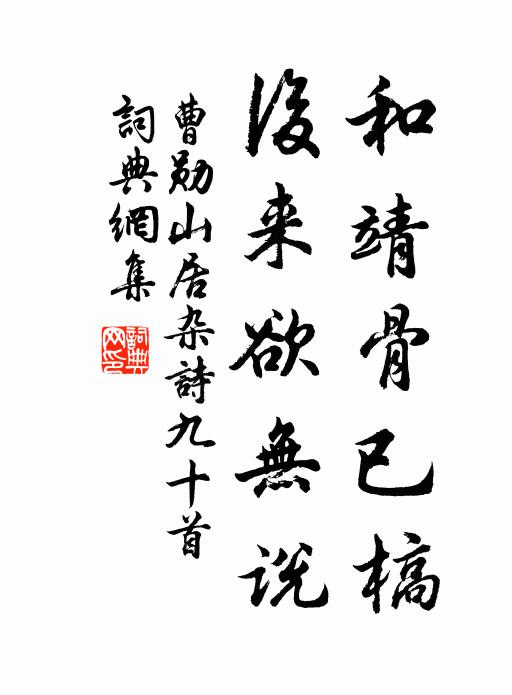 和靖骨已槁
後来欲無説
曹勛山居杂詩九十首
詞典網集
詞典
网印